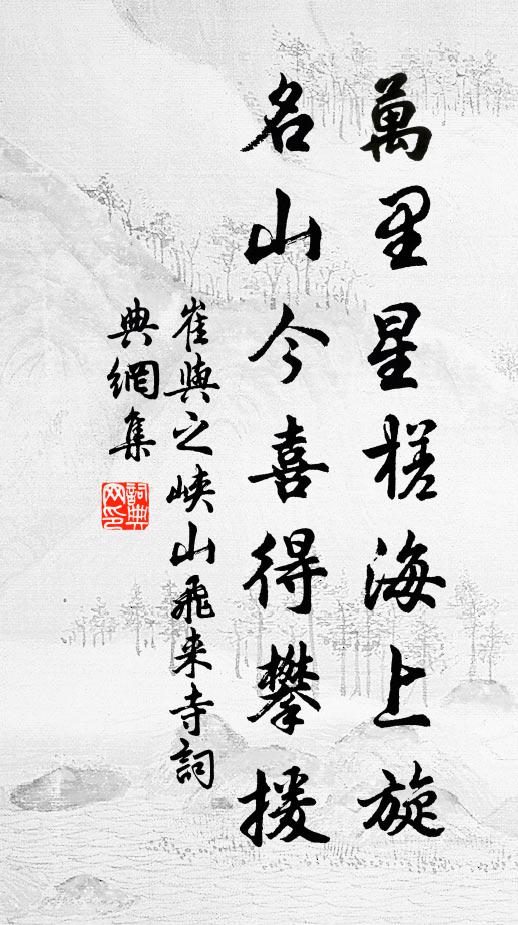 萬里星槎海上旋
名山今喜得攀援
崔與之峽山飛来寺詞
典網集
詞典
网印